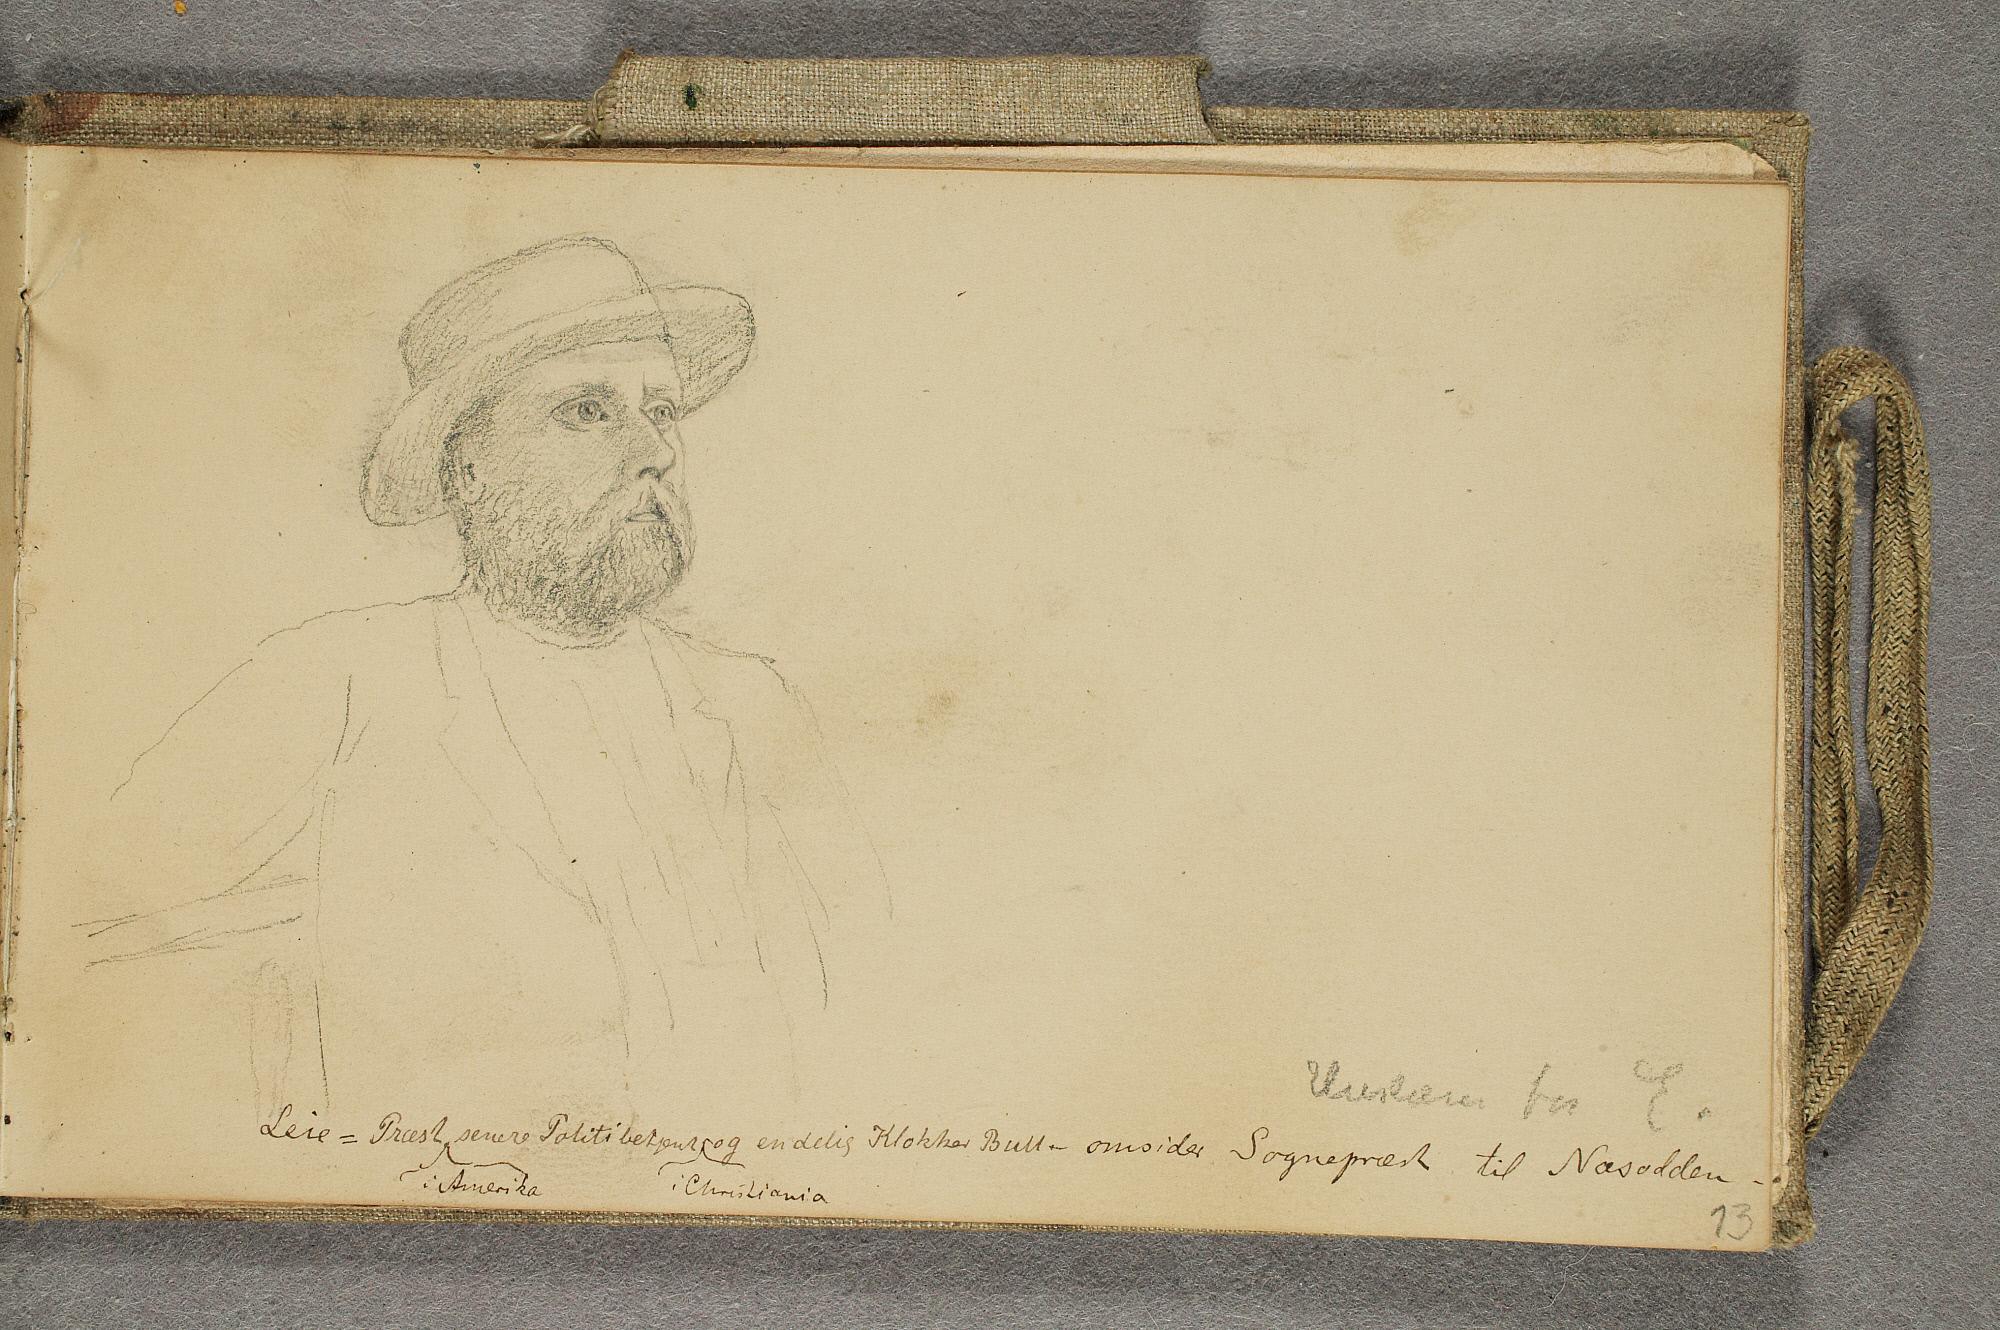 E.
Leie = Præst, senere Politibetjent, og endelig Klokker Bull – omsider Sognepræst til Næsodden –
i Amerika
i Christiania
13